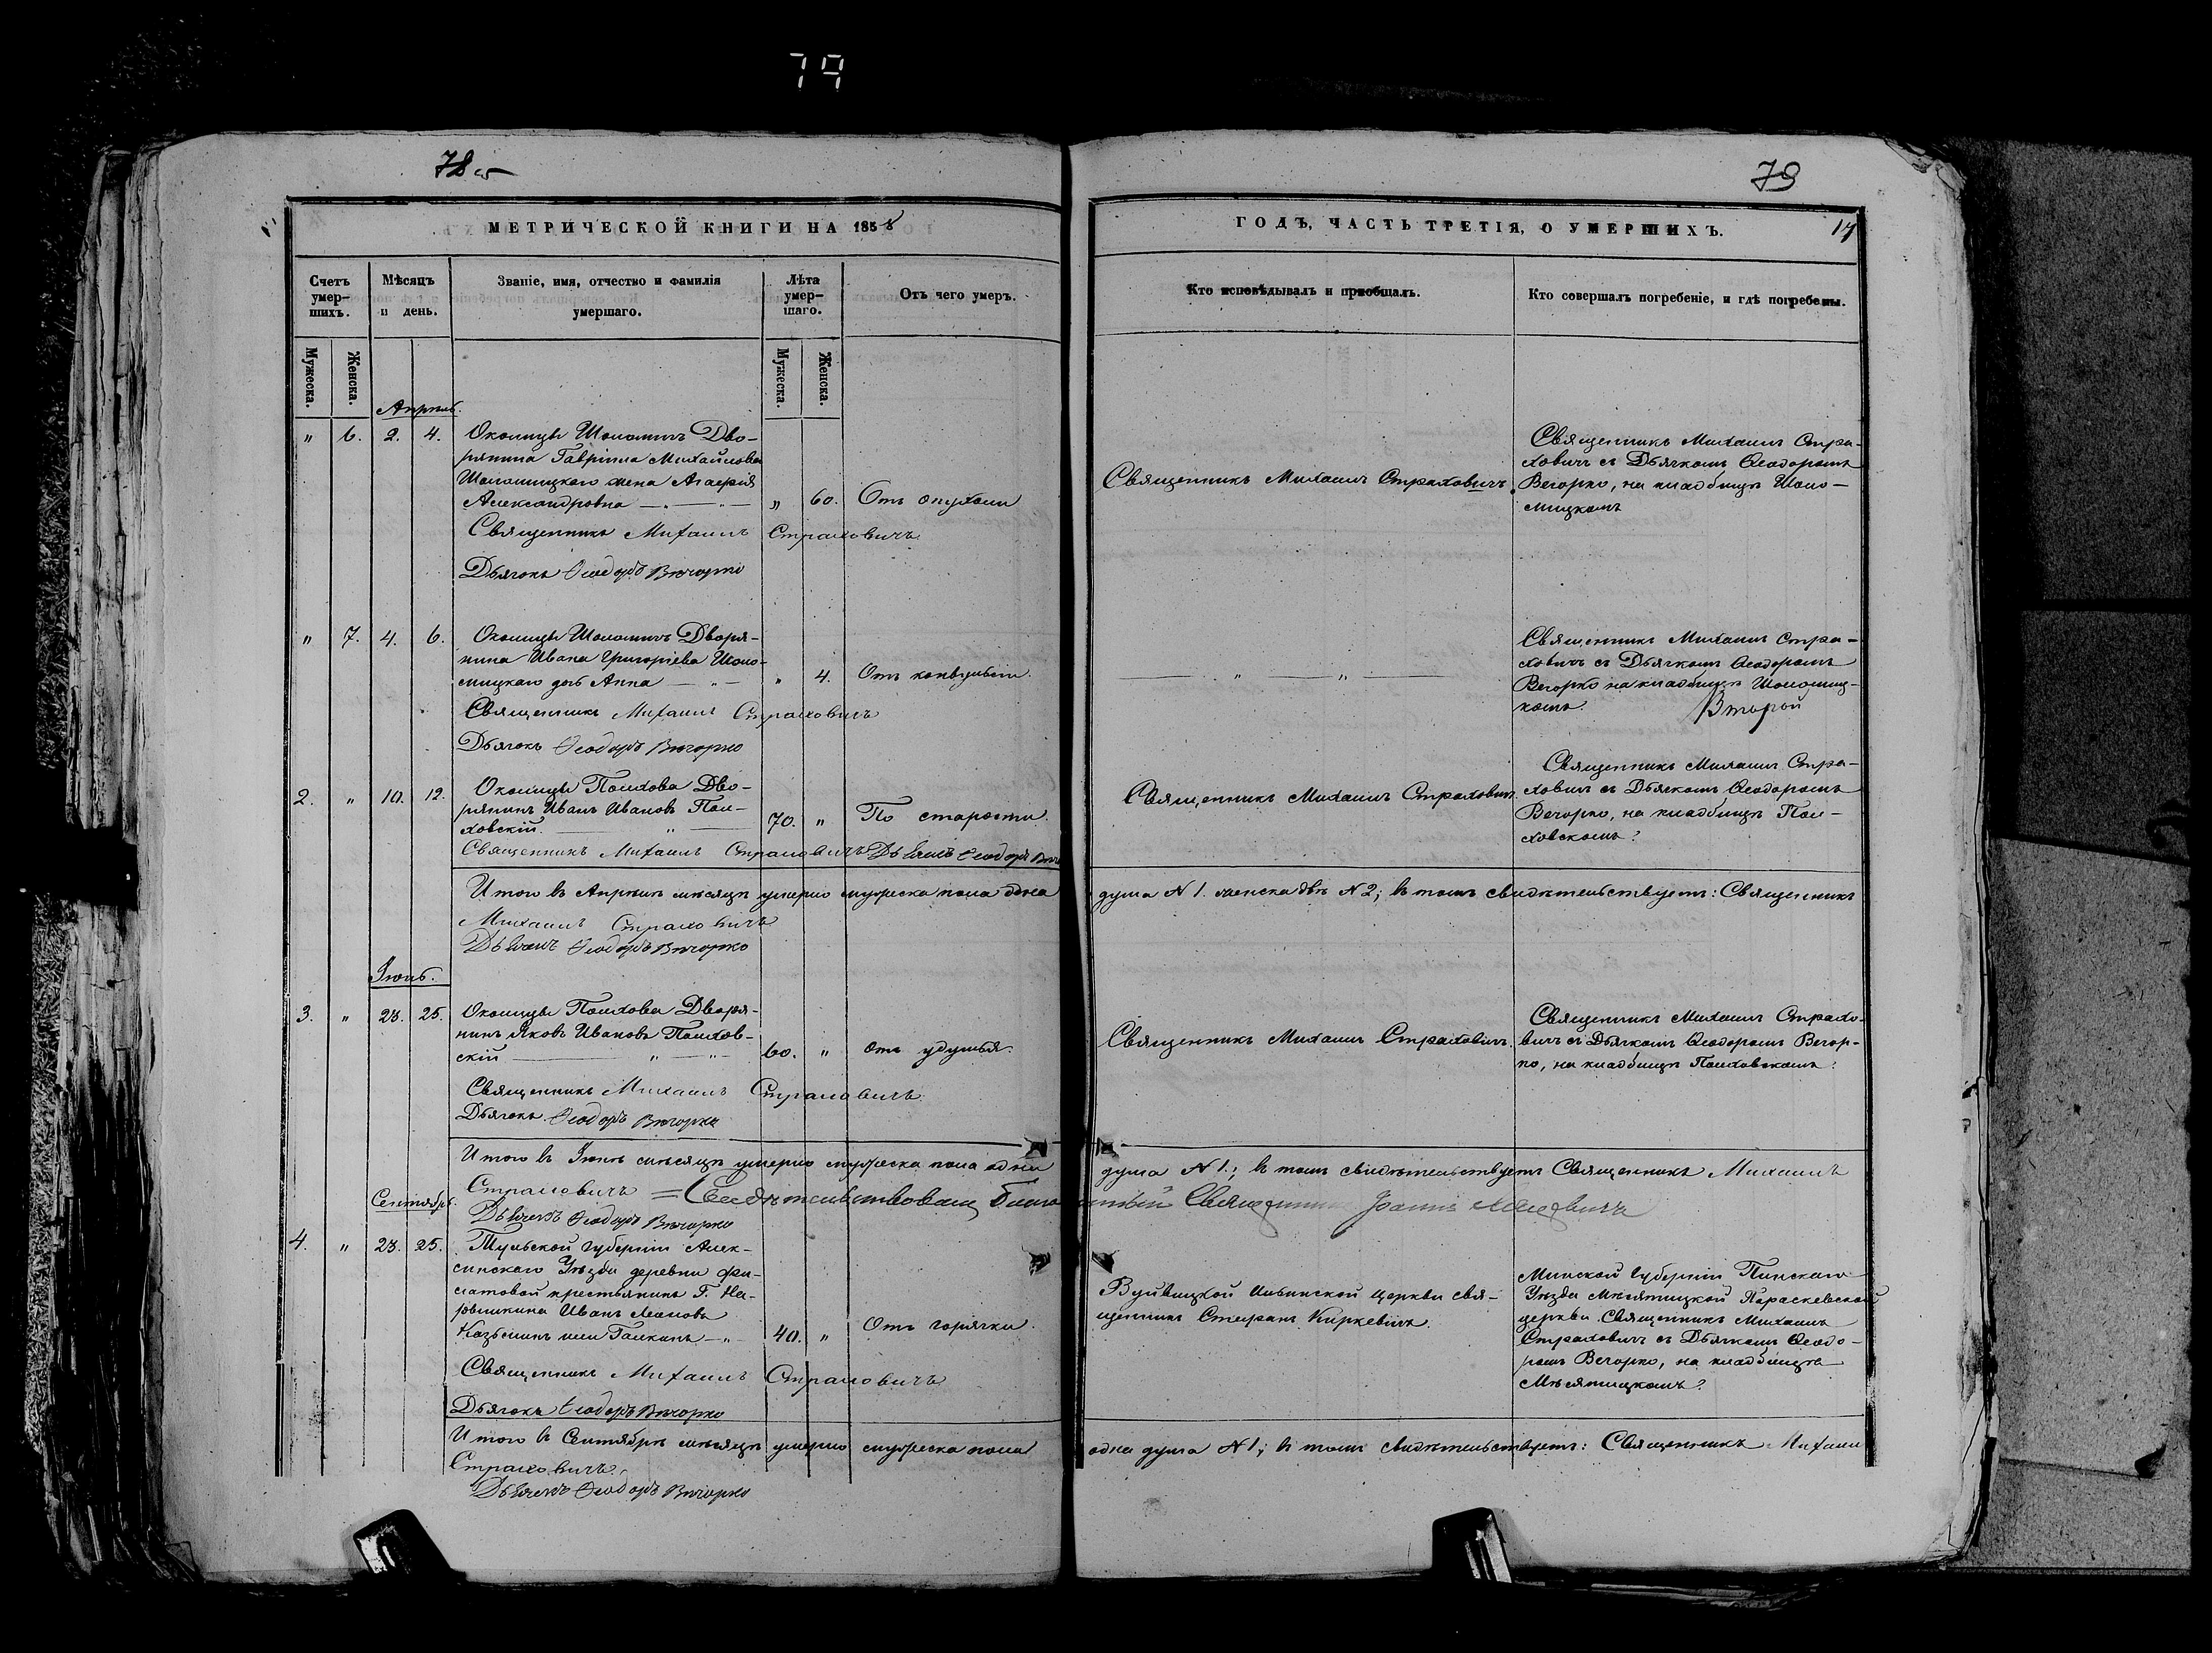 79
78 об
79
МЕТРИЧЕСКОЙ КНИГИ НА 1858
ГОДЪ, ЧАСТЬ ТРЕТІЯ, О УМЕРШИХЪ.
17
Счетъ умер-шихъ.
Мѣсяцъ и день.
Званіе, имя, отчество и фамилія умершаго.
Лѣта умер-шаго.
Отъ чего умеръ.
Кто исповѣдывалъ и пріобщалъ.
Кто совершалъ погребеніе, и гдѣ погребены.
Мужеска.
Женска.
Мужеска.
Женска.
Апрѣль.
" 6. 2. 4.
Околицы Шоломичъ Дво-
рянина Гавріила Михайлова
Шоломицкаго жена Агафія
Александровна — " —
" 60. Отъ опухоли
Священникъ Михаилъ Страховичъ
Дьячокъ Ѳеодоръ Вечорко
Священникъ Михаилъ Страховичъ.
Священникъ Михаилъ Стра-
ховичъ съ Дьячкомъ Ѳеодоромъ
Вечорко, на кладбищѣ Шоло-
мицкомъ
" 7. 4. 6.
Околицы Шоломичъ Дворя-
нина Ивана Григоріева Шоло-
мицкаго дочь Анна — " —
" 4. Отъ конвульсіи.
Священникъ Михаилъ Страховичъ
Дьячокъ Ѳеодоръ Вечорко
— " — " —
Священникъ Михаилъ Стра-
ховичъ съ Дьячкомъ Ѳеодоромъ
Вечорко на кладбищѣ Шоломиц-
комъ. Второй
2. " 10. 12.
Околицы Полхова Дво-
рянинъ Иванъ Ивановъ Пол-
ховскій. — " —
70. " По старости.
Священникъ Михаилъ Страховичъ Дьячокъ Ѳеодоръ
Священникъ Михаилъ Страховичъ
Священникъ Михаилъ Стра-
ховичъ съ Дьячкомъ Ѳеодоромъ
Вечорко, на кладбищѣ Пол-
ховскомъ.
Итого въ Апрѣлѣ мѣсяцѣ умерло мужеска пола одна душа N 1. женска двѣ N 2; въ томъ свидѣтельствуетъ: Священникъ
Михаилъ Страховичъ
Дьячокъ Ѳеодоръ Вечорко
Іюнь.
3. " 23. 25.
Околицы Полхова Дворя-
нинъ Яковъ Ивановъ Полхов-
скій — " — " —
60. " отъ удушья.
Священникъ Михаилъ Страховичъ
Дьячокъ Ѳеодоръ Вечорко
Священникъ Михаилъ Страховичъ.
Священникъ Михаилъ Страхо-
вичъ съ Дьячкомъ Ѳеодоромъ Вечор-
ко, на кладбищѣ Полховскомъ.
Итого въ Іюнѣ мѣсяцѣ умерло мужеска пола одна душа N 1.; въ томъ свидѣтельствуетъ Священникъ Михаилъ
Страховичъ = Священникъ Іоаннъ
Дьячокъ Ѳеодоръ Вечорко
Сентябрь.
4. " 23. 25.
Тульской Губерніи Алек-
синскаго Уѣзда деревни Фи-
латовой крестьянинъ Г. На-
рышкина Иванъ
— " —
40. " Отъ горячки.
Священникъ Михаилъ Страховичъ
Дьячокъ Ѳеодоръ Вечорко
церкви свя-
щенникъ Стефанъ Киркевичъ.
Минской Губерніи Пинскаго
Уѣзда Мѣсятицкой Параскевской
церкви Священникъ Михаилъ
Страховичъ съ Дьячкомъ Ѳеодо-
ромъ Вечорко, на кладбищѣ
Мѣсятицкомъ.
Итого въ Сентябрѣ мѣсяцѣ умерло мужеска пола одна душа N 1; въ томъ свидѣтельствуетъ: Священникъ Михаилъ
Страховичъ.
Дьячокъ Ѳеодоръ Вечорко